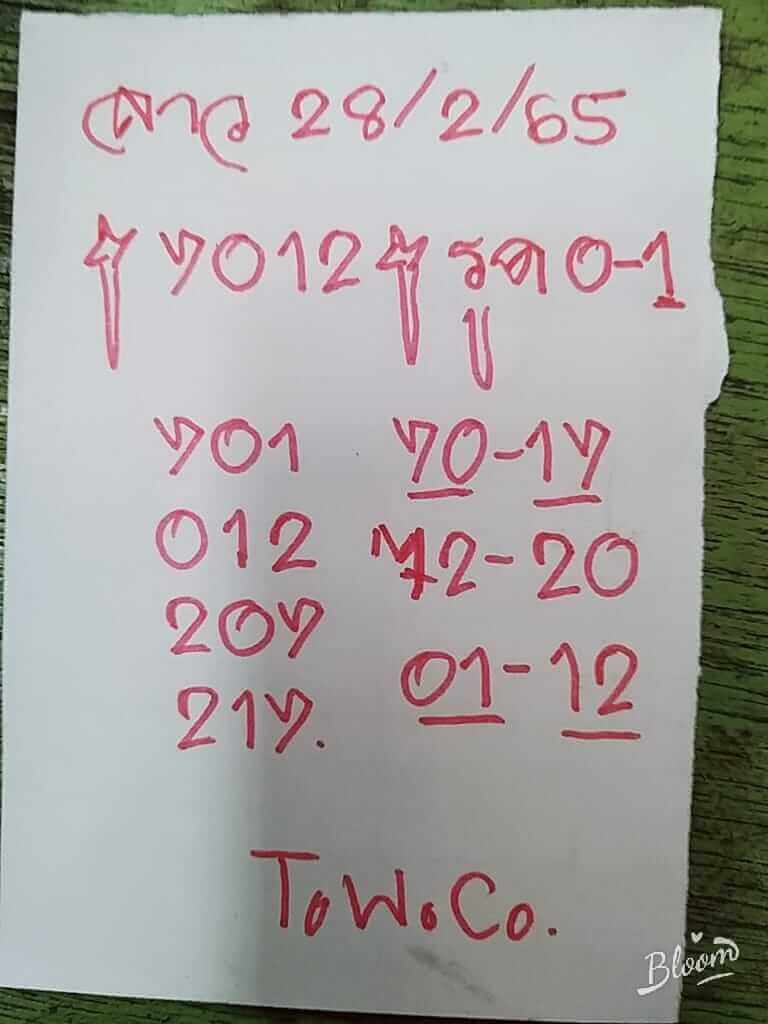 ลาว 28/2/65
7012 รูด 0-1
701 70-17
012 72-20
207 01-12
217.
T.W.Co.
Bloom